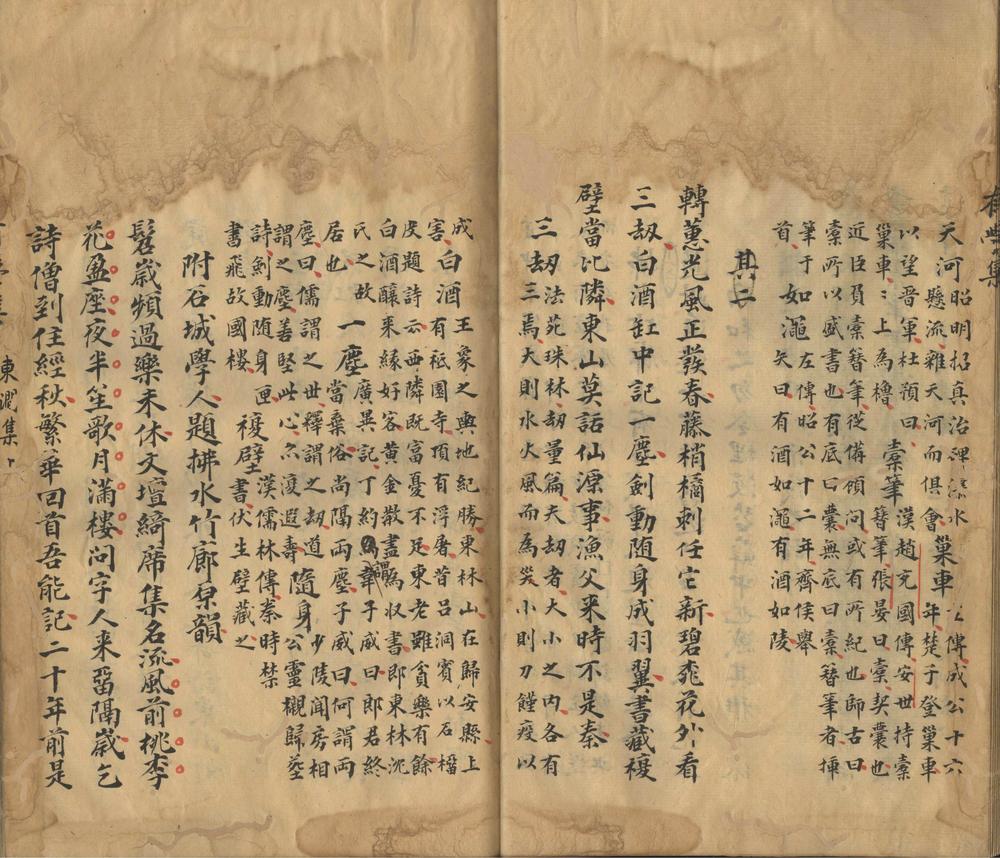 有學集
天河昭明招真治碑
懸流雜天河而俱會
巢車傳成公十六
年楚子登巢車
以望晋軍杜預曰
巢車〻上為櫓
橐筆漢趙充國傳安世持橐
簪筆張晏曰橐契囊也
近臣負橐簪筆從備傾問或有所紀也師古曰
橐所以盛書也有底曰囊無底曰橐簪筆者插
筆于
首
如澠左傳昭公十二年齊侯舉
矢曰有酒如澠有酒如陵
其二
轉蕙光風正發春藤梢橘刺任它新碧桃花外看
三劫白酒缸中記一塵劍動随身成羽翼書藏複
壁當比隣東山莫話仙源事漁父来時不是秦
三劫法苑珠林劫量篇夫劫者大小之内各有
三焉大則水火風而為災小則刀饉疫以
成
害
白酒王象之輿地紀勝東林山在歸安縣上
有祗園寺頂有浮屠昔吕洞賓以石榴
皮題詩云西隣既富憂不足東老雖貧樂有餘
白酒釀来緣好客黄金散盡為収書郎東林沈
氏之故
居也
一塵廣異記丁約謂韋子威曰郎君終
當棄俗尚隔兩塵子威曰何謂兩
塵曰儒謂之世釋謂之劫道
謂之塵善堅此心亦復遐壽
隨身少陵聞房相
公靈櫬歸塟
詩劍動随身匣
書飛故國樓
複壁漢儒林傳秦時禁
書伏生壁藏之
附石城學人題拂水竹廊原韻
髫歲頻過樂未休文壇綺席集名流風前桃李
花盈座夜半笙歌月滿樓问字人来畱隔歲乞
詩僧到住經秋繁華回首吾能記二十年前是
東澗集